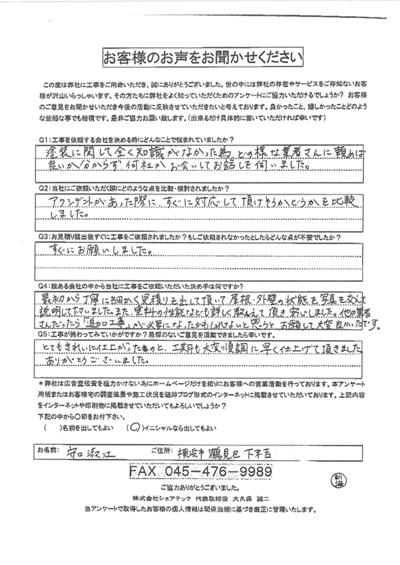 お客様のお声をお聞かせください
この度は弊社に工事をご用命いただき、誠にありがとうございました。世の中には弊社の存在やサービスをご存知ないお客
様が沢山いらっしゃいます。その方たちに弊社をよく知っていただくためのアンケートにご協力いただけるでしょうか? お客様
のご意見をお聞かせいただき今後の活動に反映させていただきたいと考えております。良かったこと、嬉しかったことどのよう
な些細な事でも結構です。是非ご協力お願い致します。(出来るだけ具体的に書いていただければ幸いです)
Q1:工事を依頼する会社を決める時にどんなことで悩まれていましたか?
塗装に関して全く知識がなかった為、どの様な業者さんに頼めば
良いか分からず、何社かお会いしてお話しを伺いました。
Q2:当社にご依頼いただく際にどのような点を比較・検討されましたか?
アクシデントがあった際に、すぐに対応して頂けそうかどうかを比較
しました。
Q3:お見積り提出後すぐに工事をご依頼されましたか?もしご依頼されなかったとしたらどんな点が不安でしたか?
すぐにお願いしました。
Q4:数ある会社の中から当社に工事をご依頼いただいた決め手は何ですか?
最初から丁寧に細かく見積りを出して頂いて、屋根・外壁の状態を写真を交えて
説明して下さいました。また、塗料の性能なども詳しく教えて頂き
さんだったら「追加工事」が必要になったかもしれないと思うと、お願いして大変良かったです。
Q5:工事が終わってみていかがですか?忌憚のないご意見を頂戴できましたら幸いです。
とてもきれいに仕上がった事と、工期も大変順調に早く仕上げて頂きました。
ありがとうございました。
*弊社は広告宣伝費を極力かけない為にホームページだけを頼りにお客様への営業活動を行っております。本アンケート
用紙またはお客様宅の調査風景や施工状況を随時ブログ形式のインターネットに掲載させていただいています。上記内容
をインターネットや印刷物に掲載させていただいてもよろしいでしょうか?
下記の中から○印をお付下さい。
( )名前を出してもよい (○)イニシャルなら出してもよい
お名前: 守口 淑江 ご住所: 横浜市鶴見区下末吉
FAX 045-476-9989
ご協力ありがとうございました。
株式会社シェアテック 代表取締役 大久保 誠二
当アンケートで取得したお客様の個人情報は関係法規に基づき厳正に管理いたします。